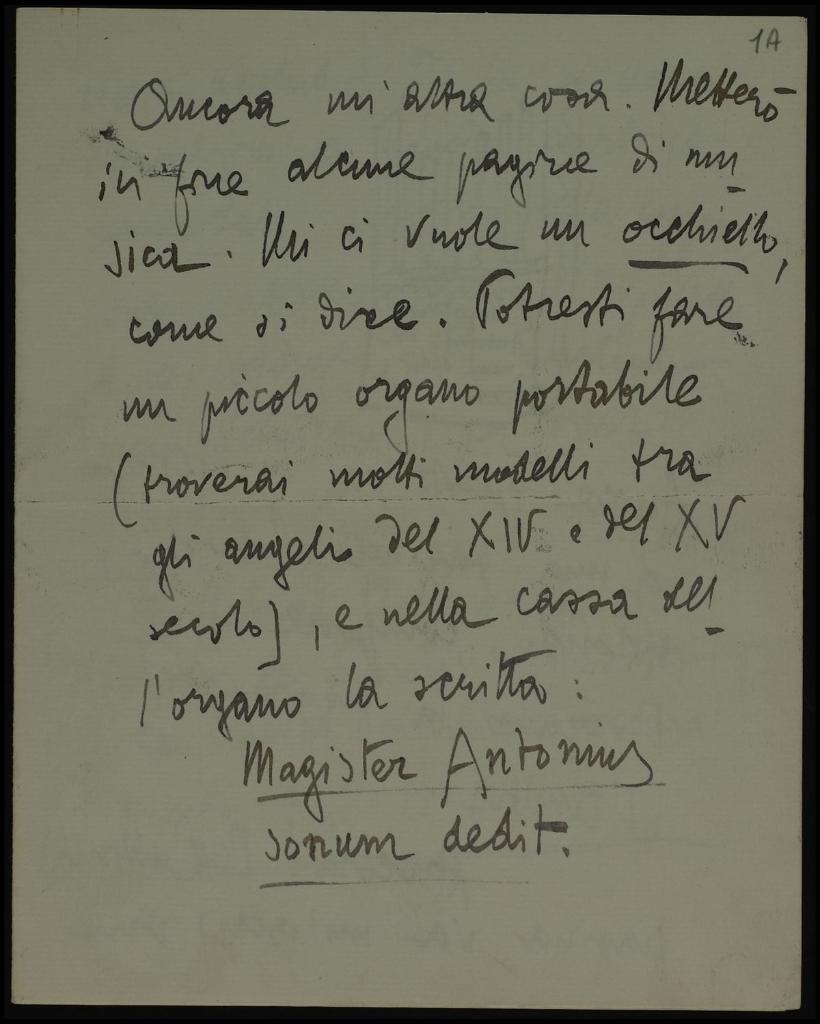 1A
Ancora un'altra cosa. Metterò
in fine alcune pagine di mu
sica. Mi ci vuole un occhiello,
come si dice. Potresti fare
un piccolo organo portabile
(troverai molti modelli tra
gli angeli del XIV e del XV
secolo), e nella cassa del
l'organo la scritta:
Magister Antonius
sonum dedit.